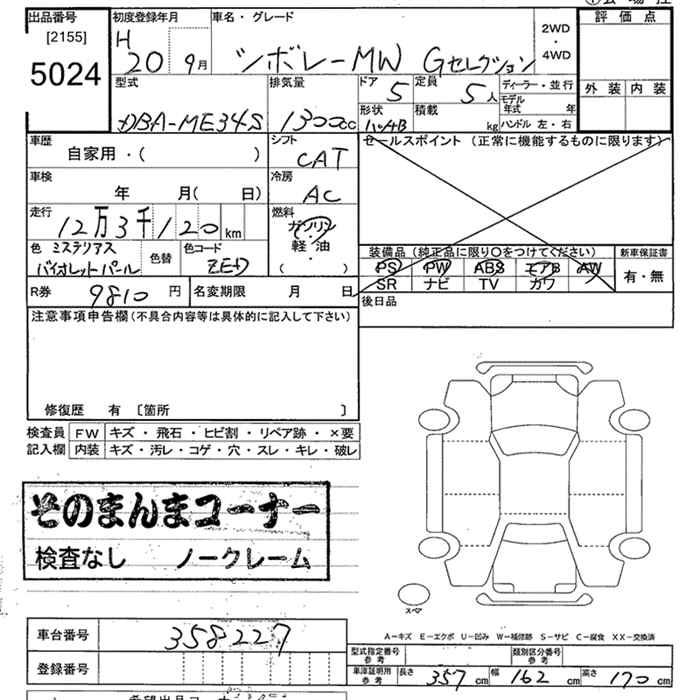 出品番号
[2155]
5024
初度登録年月
H
20 9月
車名・グレード
シボレーMW Gセレクション
2WD
4WD
評価点
外装 内装
型式
DBA-ME34S
排気量
1300cc
ドア
5
定員
5人
形状
ハッチB
積載
kg
ディーラー・並行
モデル年式 年
ハンドル 左・右
車歴
自家用・( )
シフト
CAT
セールスポイント (正常に機能するものに限ります)
車検
年 月( 日)
冷房
AC
走行
12万3千120km
燃料
ガソリン
軽油
( )
色 ミステリアス
バイオレットパール
色替
色コード
ZED
装備品(純正品に限り〇をつけてください)
PS PW ABS エアB AW
SR ナビ TV カワ
新車保証書
有・無
R券 9810円
名変期限 月 日
後日品
注意事項申告欄(不具合内容等は具体的に記入して下さい)
修復歴 有 [箇所 ]
検査員 FW キズ・飛石・ヒビ割・リペア跡・×要
記入欄 内装 キズ・汚レ・コゲ・穴・スレ・キレ・破レ
そのまんまコーナー
検査なし ノークレーム
スペア
A-キズ E-エクボ U-凹み W-補修跡 S-サビ C-腐食 XX-交換済
車台番号 358227
登録番号
型式指定番号
参考
類別区分番号
参考
車庫証明用
参考
長さ 357cm 幅 162cm 高さ 170cm